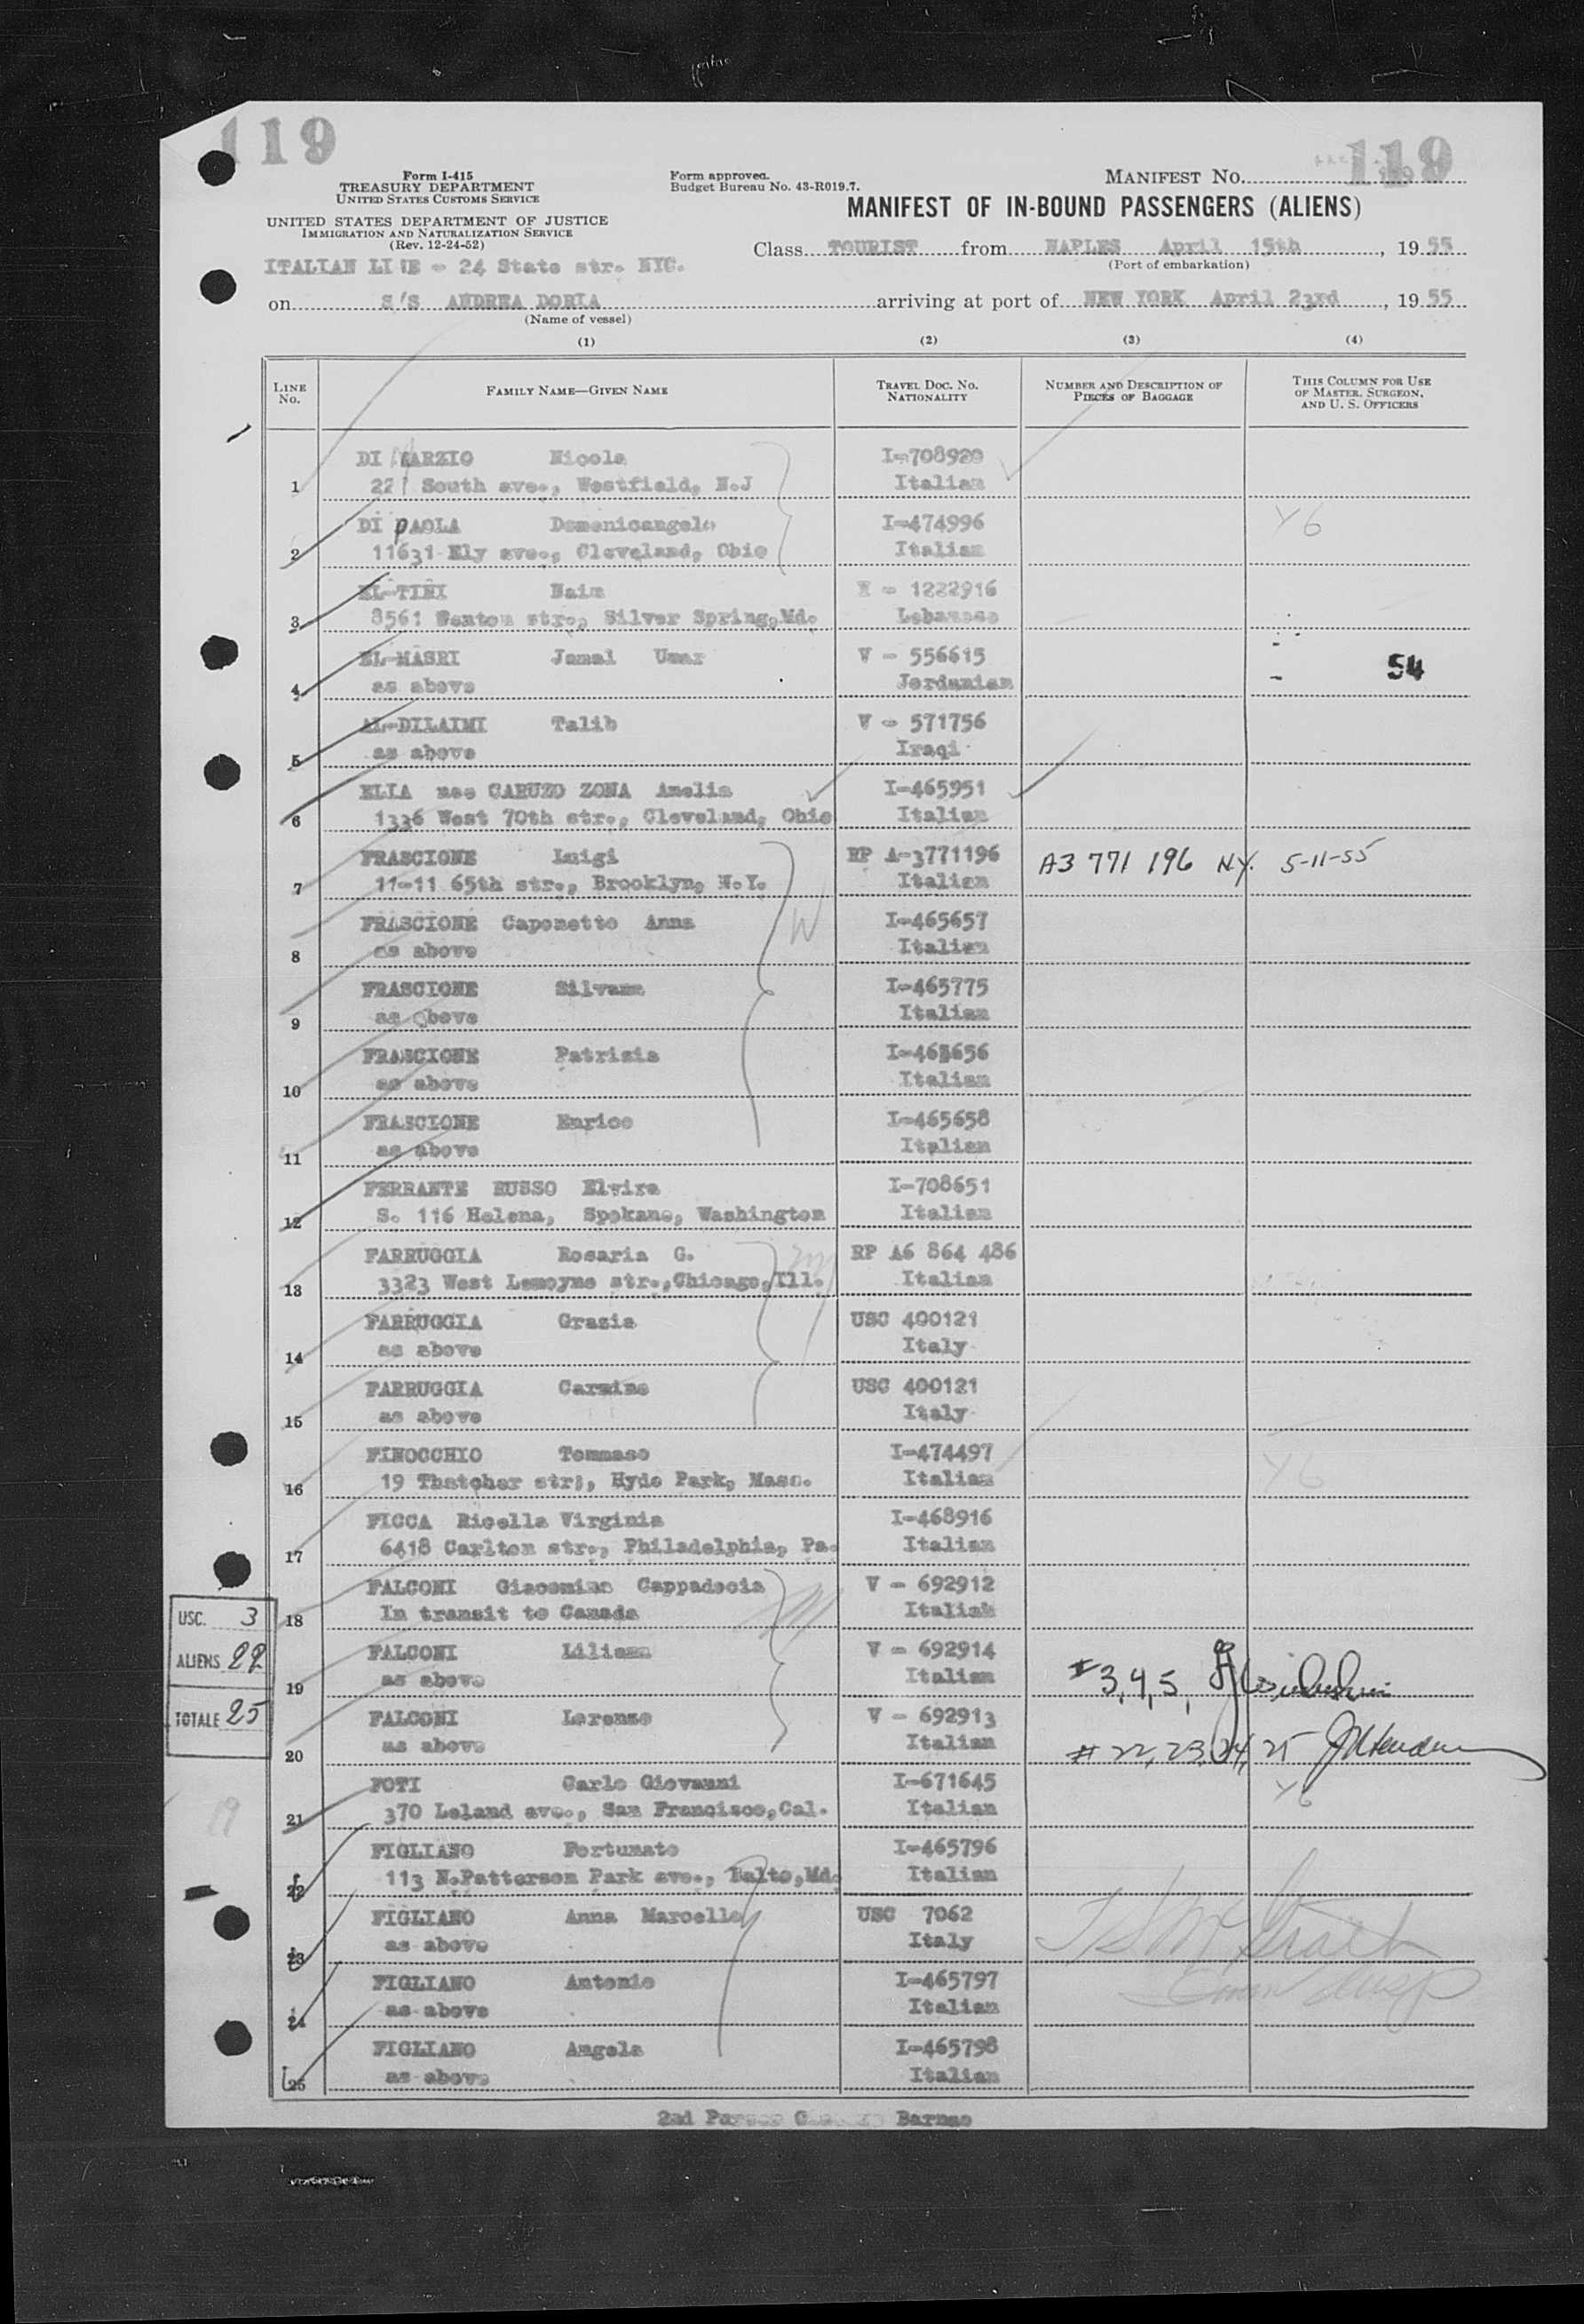 119
119
Form I-415
TREASURY DEPARTMENT
UNITED STATES CUSTOMS SERVICE
UNITED STATES DEPARTMENT OF JUSTICE
IMMIGRATION AND NATURALIZATION SERVICE
(Rev. 12-24-52)
Form approved.
Budget Bureau No. 43-R019.7.
MANIFEST NO.
MANIFEST OF IN-BOUND PASSENGERS (ALIENS)
Class TOURIST from NAPLES April 15th, 19 55
(Port of embarkation)
ITALIAN LINE - 24 State str. NYC.
on S/S ANDREA DORIA arriving at port of NEW YORK April 23rd, 19 55
(Name of vessel)
(1) (2) (3) (4)
LINE NO. FAMILY NAME—GIVEN NAME TRAVEL DOC. NO. NATIONALITY NUMBER AND DESCRIPTION OF PIECES OF BAGGAGE THIS COLUMN FOR USE OF MASTER, SURGEON, AND U. S. OFFICERS
DI MARZIO Nicola I-708920
1 221 South ave., Westfield, N.J Italian
DI PAOLA Domenicangelo I-474996 Y6
2 11631 Ely ave., Cleveland, Ohio Italian
EL-TINI Naim - 1222916
3 8561 str., Silver Spring, Md. Lebanese
EL-MASRI Jamal Umar V - 556615
4 as above Jordanian 54
AL-DILAIMI Talib V - 571756
5 as above Iraqi
ELIA nee CARUZO ZONA Amelia I-465951
6 1336 West 70th str., Cleveland, Ohio Italian
FRASCIONE Luigi RP A-3771196 A3 771 196 N.Y. 5-11-55
7 11-11 65th str., Brooklyn, N.Y. Italian
FRASCIONE Caponetto Anna I-465657 W
8 as above Italian
FRASCIONE Silvana I-465775
9 as above Italian
FRASCIONE Patrizia I-465656
10 as above Italian
FRASCIONE Enrico I-465658
11 as above Italian
FERRANTE RUSSO Elvira I-708651
12 S. 116 Helena, Spokane, Washington Italian
FARRUGGIA Rosaria G. RP A6 864 486
13 3323 West Lemoyne str., Chicago, Ill. Italian
FARRUGGIA Grazia USC 400121
14 as above Italy
FARRUGGIA Carmine USC 400121
15 as above Italy
FINOCCHIO Tommaso I-474497 Y6
16 19 Thatcher str;, Hyde Park, Mass. Italian
FICCA Ricella Virginia I-468916
17 6418 Carlton str., Philadelphia, Pa. Italian
FALCONI Giacomina Cappadocia V - 692912
18 In transit to Canada Italian
USC. 3
ALIENS 22
TOTALE 25
FALCONI Liliana V - 692914
19 as above Italian #3,4,5,
FALCONI Lorenzo V - 692913
20 as above Italian #22,23,24,25
FOTI Carlo Giovanni I-671645 Y6
21 370 Leland ave., San Francisco, Cal. Italian
19
FIGLIANO Fortunato I-465796
22 113 N.Patterson Park ave., Balto, Md. Italian
FIGLIANO Anna Marcella USC 7062
23 as above Italy
FIGLIANO Antonio I-465797
24 as above Italian
FIGLIANO Angela I-465798
25 as above Italian
2nd Purser